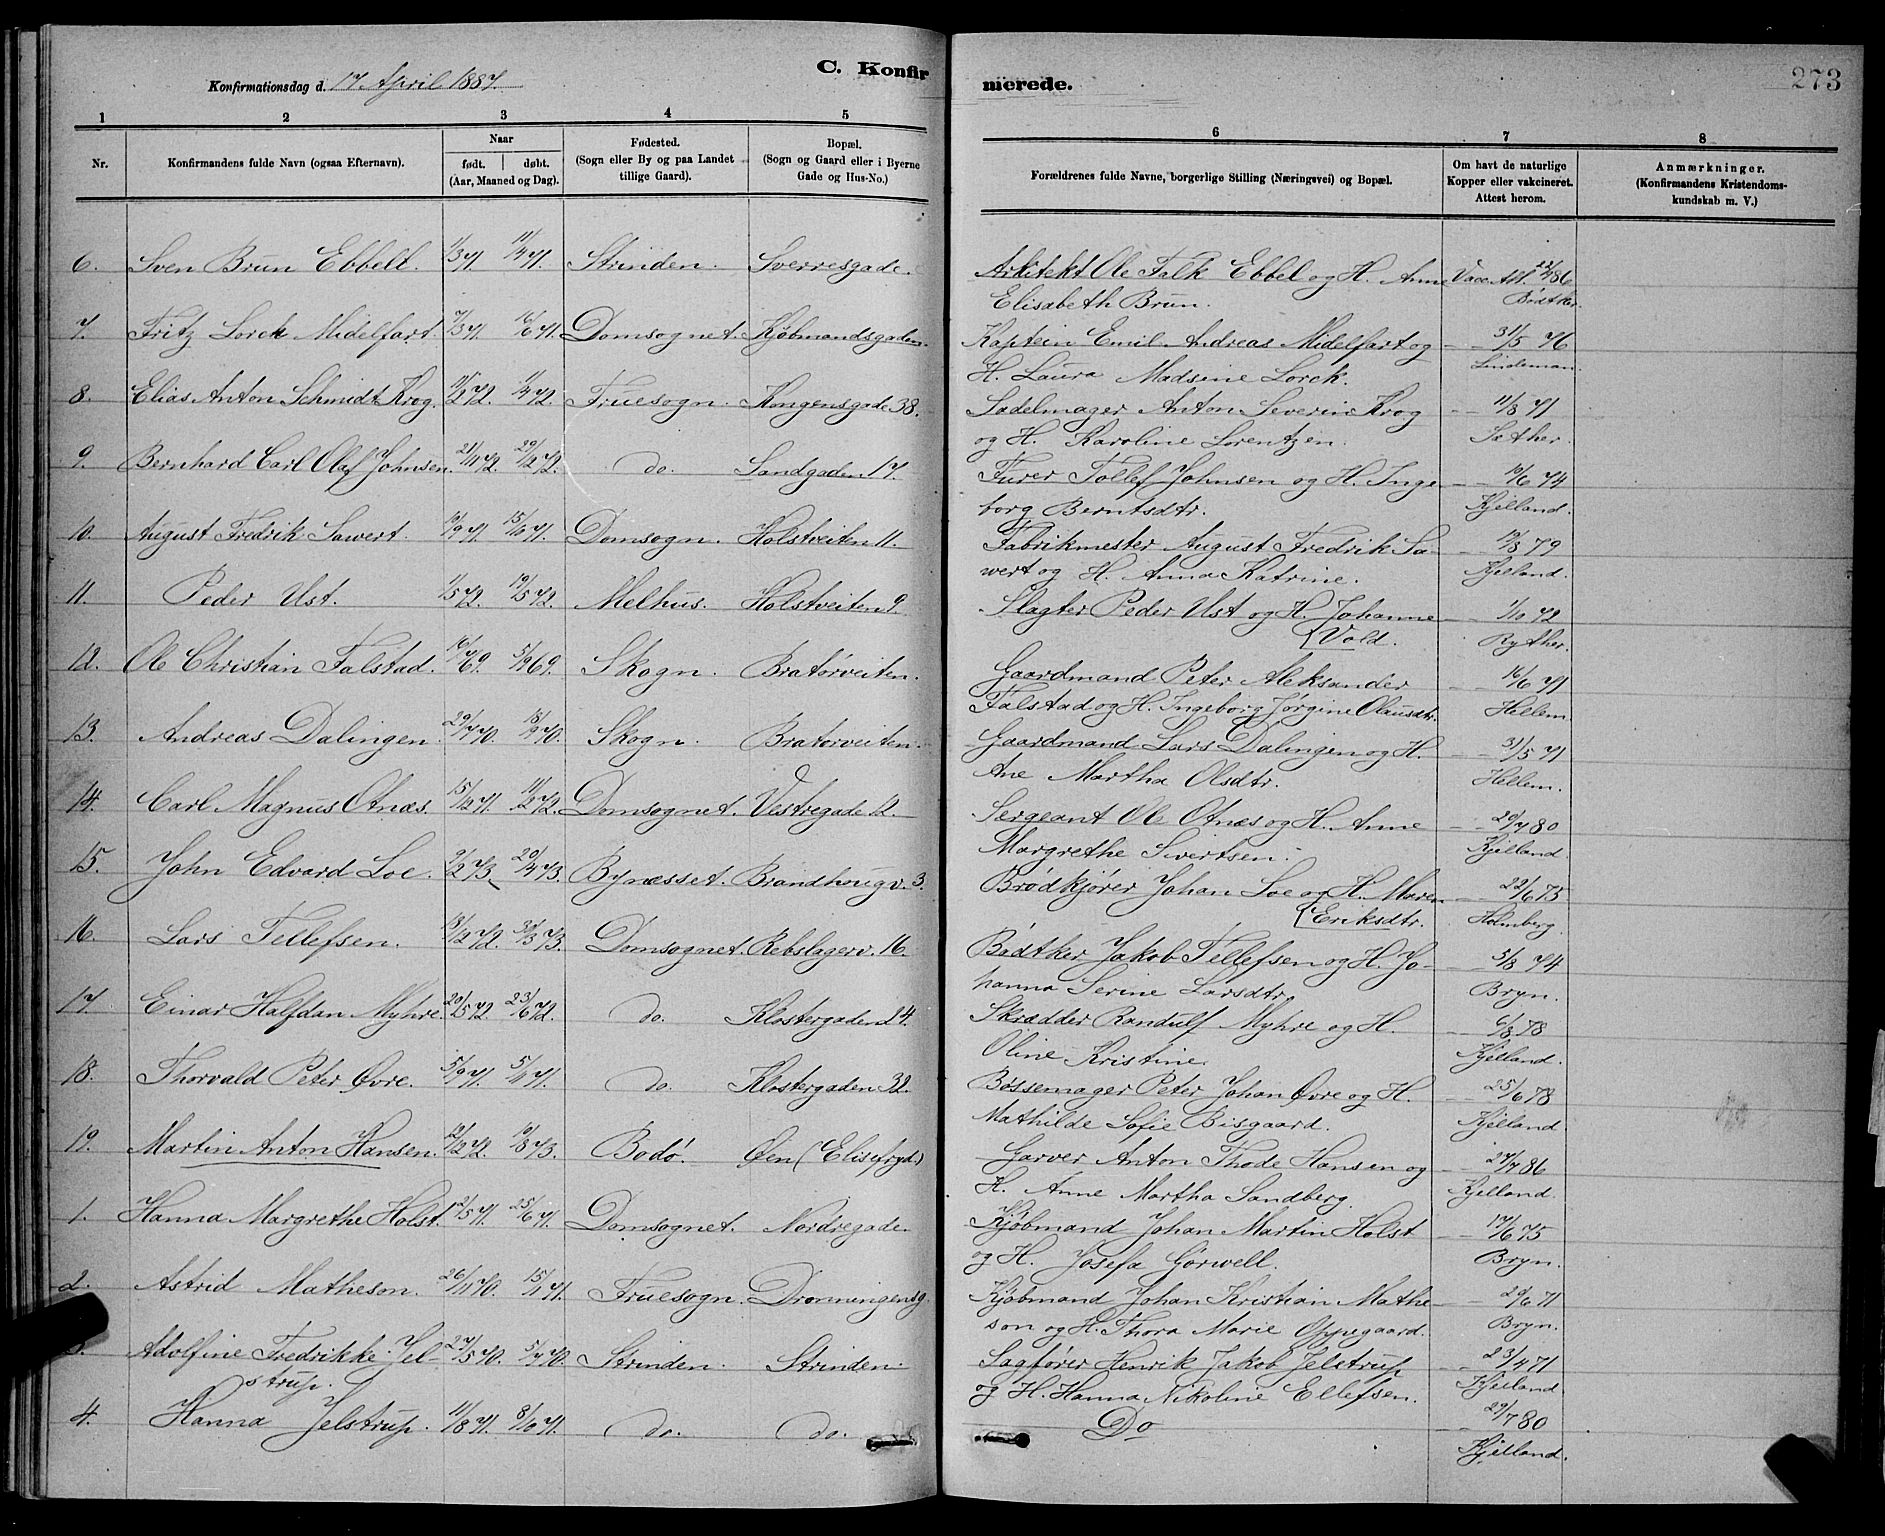 C. Konfirmerede.
273
Konfirmationsdag d. 17 April 1887.
1 2 3 4 5 6 7 8
Nr.
Konfirmandens fulde Navn (ogsaa Efternavn).
Naar
født. døbt.
(Aar, Maaned og Dag).
Fødested.
(Sogn eller By og paa Landet
tillige Gaard).
Bopæl.
(Sogn og Gaard eller i Byerne
Gade og Hus-No.)
Forældrenes fulde Navne, borgerlige Stilling (Næringsvei) og Bopæl.
Om havt de naturlige
Kopper eller vakcineret.
Attest herom.
Anmærkninger.
(Konfirmandens Kristendoms-
kundskab m. V.)
6. Sven Brun Ebbell. 1/3 71. 11/4 71. Strinden. Sverresgade. Arkitekt Ole Falk Ebbel og H. Anne Vacc. Att. 22/4 86
Elisabeth Brun. Bødtker.
7. Fritz Lorck Midelfart. 7/3 71. 16/6 71. Domsognet. Kjøbmandsgaden. Kaptein Emil Andreas Midelfart og 31/5 76
H. Laura Madsine Lorck. Lindeman.
8. Elias Anton Schmidt Krog. 11/2 72. 1/4 72. Fruesogn. Kongensgade 38. Sadelmager Anton Severin Krog 11/8 71
og H. Karoline Lorentzen. Sæther.
9. Bernhard Carl Olaf Johnsen. 21/11 72. 29/12 72. do. Sandgaden 17. Furer Tollef Johnsen og H. Inge 10/6 74
borg Berntsdtr. Kjelland.
10. August Fredrik Sawert. 10/9 71. 15/10 71. Domsogn. Holstveiten 11. Fabrikmester August Fredrik Sa- 19/8 79
wert og H. Anna Katrine. Kjelland.
11. Peder Ust. 1/5 72. 19/5 72. Melhus. Holstveiten 9. Slagter Peder Ust og H. Johanne 1/10 72
(Vold. Ryther.
12. Ole Christian Falstad. 16/7 69. 5/9 69. Skogn. Bratørveiten. Gaardmand Peter Aleksander 16/6 71
Falstad og H. Ingeborg Jørgine Olausdtr. Hellem.
13. Andreas Dalingen. 29/7 70. 18/9 70. Skogn. Bratørveiten. Gaardmand Lars Dalingen og H. 31/5 71
Ane Martha Olsdtr. Hellem.
14. Carl Magnus Otnæs. 15/12 71. 11/2 72. Domsognet. Vestregade 12. Sergeant Ole Otnæs og H. Anne 29/7 80
Margrethe Sivertsen. Kjelland.
15. John Edvard Loe. 9/2 73. 20/4 73. Bynæsset. Brandhougv. 3. Brødkjører Johan Loe og H. Maren 22/6 75
(Eriksdtr. Holmberg.
16. Lars Tellefsen. 18/12 72. 30/3 73. Domsognet. Rebslagerv. 16. Bødtker Jakob Tellefsen og H. Jo- 5/8 74
hanna Serine Larsdtr. Bryn.
17. Einar Halfdan Myhre. 20/5 72. 23/6 72. do. Klostergaden 24. Skrædder Randulf Myhre og H. 6/8 78
Oline Kristine. Kjelland.
18. Thorvald Peter Øvre. 5/9 71. 5/11 71. do. Klostergaden 32. Bøssemager Peter Johan Øvre og H. 25/6 78
Mathilde Sofie Bisgaard. Kjelland.
19. Martin Anton Hansen. 2/12 72. 10/8 73. Bodø. Øen (Elisefryd.) Garver Anton Thode Hansen og 27/7 86
H. Anne Martha Sandberg. Kjelland.
1. Hanna Margrethe Holst. 12/5 71. 25/6 71. Domsognet. Nordregade. Kjøbmand Johan Martin Holst 17/6 75
og H. Josefa Gørwell. Bryn.
2. Astrid Matheson. 26/11 70. 15/1 71. Fruesogn. Dronningensg. Kjøbmand Johan Kristian Mathe 29/6 71
son og H. Thora Marie Oppegaard. Bryn.
3. Adolfine Fredrikke Jel- 27/5 70. 5/7 70. Strinden. Strinden. Sagfører Henrik Jakob Jelstrup 23/4 71
strup. og H. Hanna Nikoline Ellefsen. Kjelland.
4. Hanna Jelstrup. 11/8 71. 8/10 71. do. do. Do 29/7 80
Kjelland.